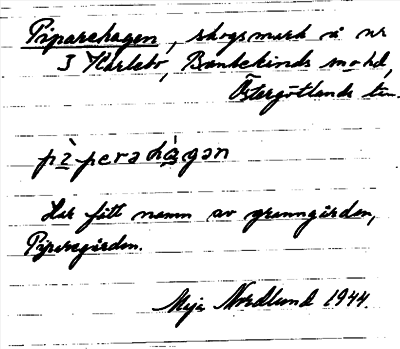 Piparehagen, skogsmark å nr
3 Karlebo, Bankekinds sn o hd,
Östergötlands län.
pìperahàgan
Har fått namn av granngården,
Piparegården.
Maja Nordlund 1944.